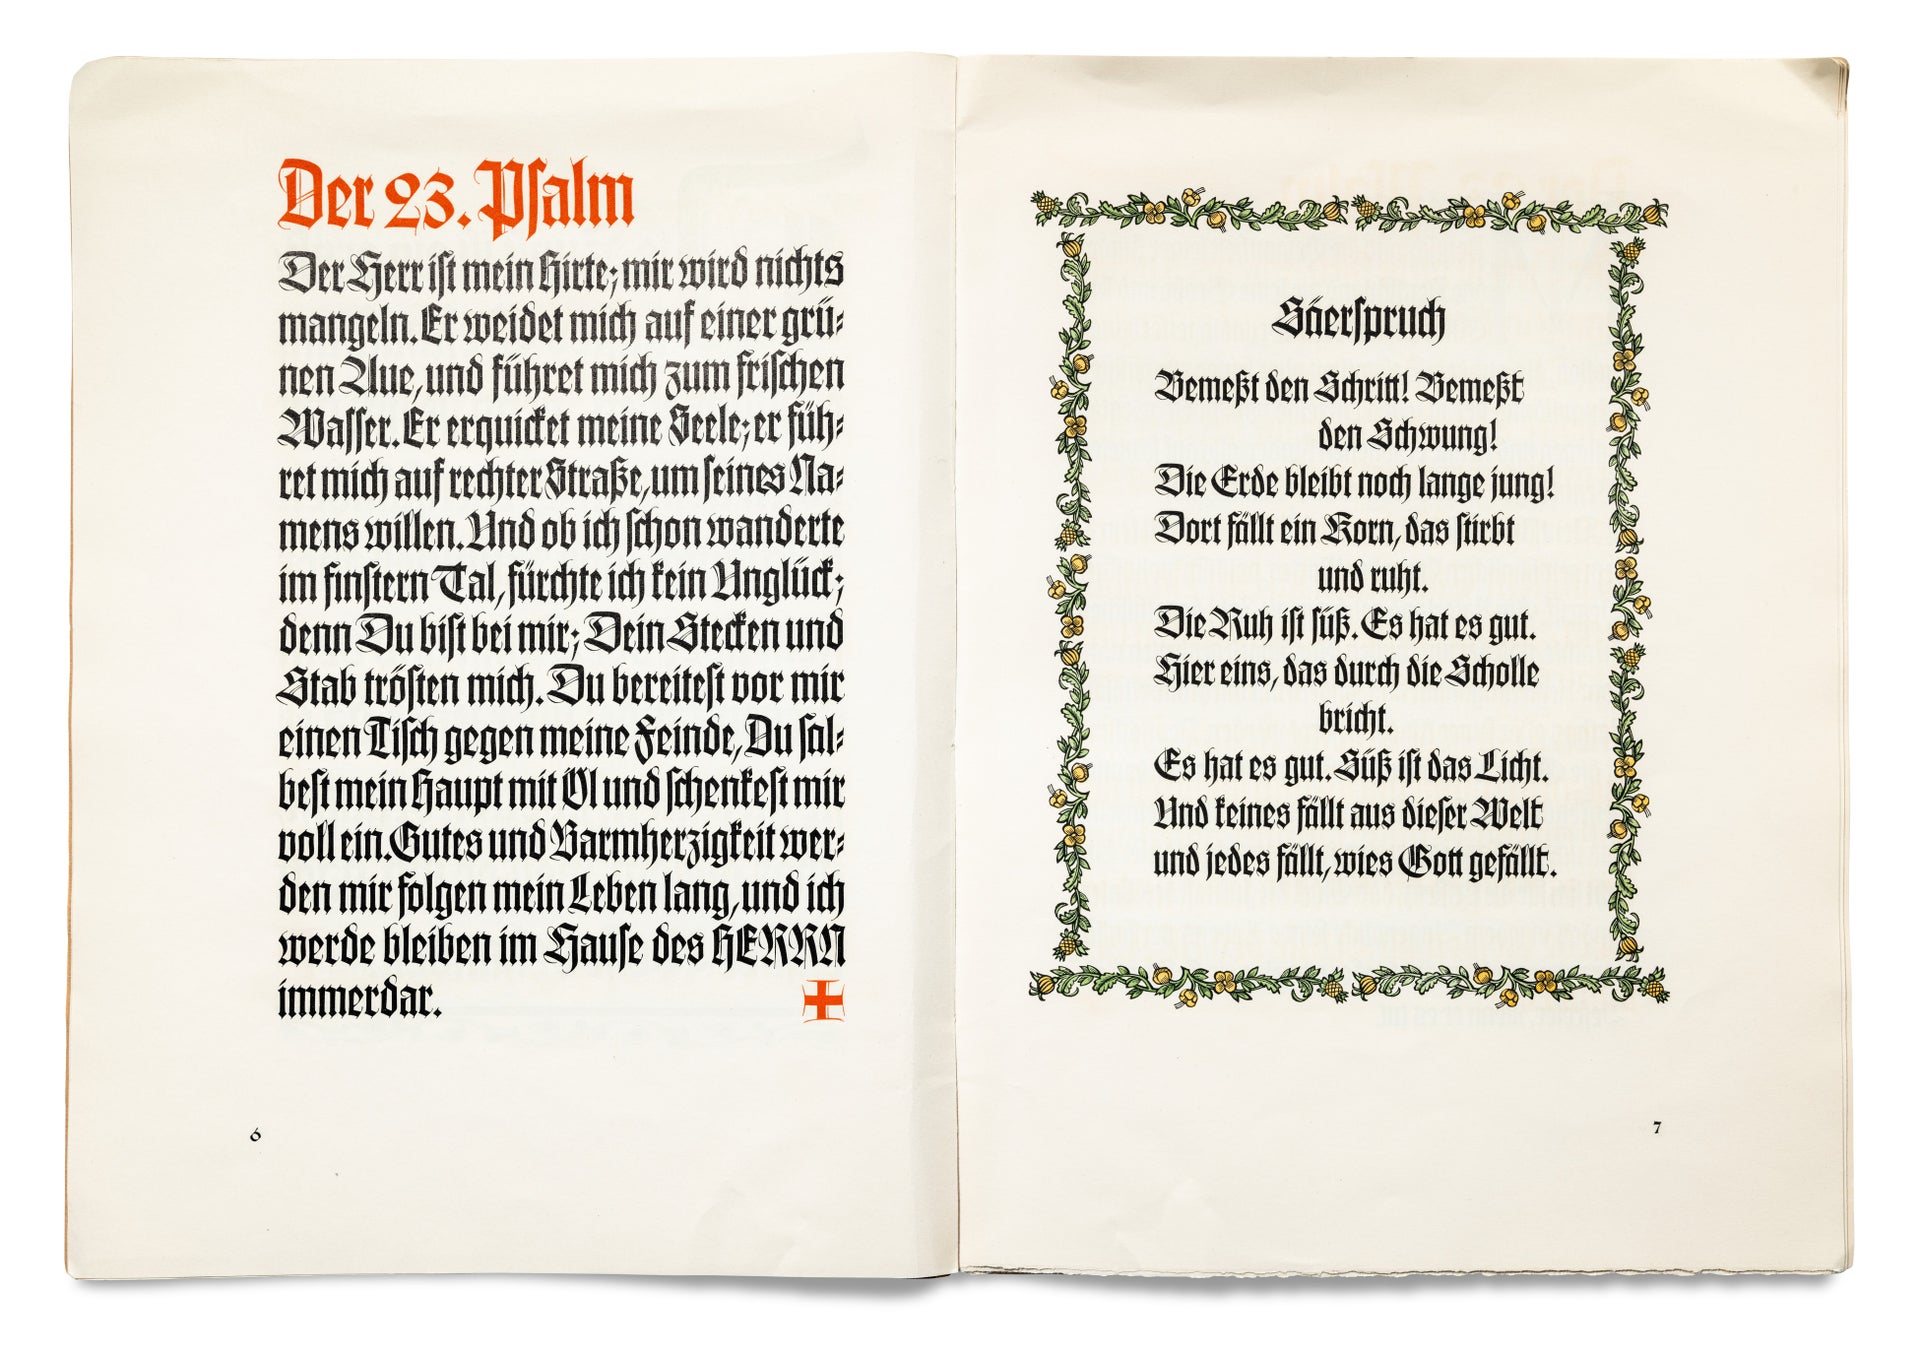 Der 23. Psalm
Der Herr ist mein Hirte; mir wird nichts
mangeln. Er weidet mich auf einer grü-
nen Aue, und führet mich zum frischen
Wasser. Er erquicket meine Seele; er füh-
ret mich auf rechter Straße, um seines Na-
mens willen. Und ob ich schon wanderte
im finstern Tal, fürchte ich kein Unglück;
denn Du bist bei mir; Dein Stecken und
Stab trösten mich. Du bereitest vor mir
einen Tisch gegen meine Feinde, Du sal-
best mein Haupt mit Öl und schenkest mir
voll ein. Gutes und Barmherzigkeit wer-
den mir folgen mein Leben lang, und ich
werde bleiben im Hause des HERRN
immerdar.
6
Säerspruch
Bemeßt den Schritt! Bemeßt
den Schwung!
Die Erde bleibt noch lange jung!
Dort fällt ein Korn, das stirbt
und ruht.
Die Ruh ist süß. Es hat es gut.
Hier eins, das durch die Scholle
bricht.
Es hat es gut. Süß ist das Licht.
Und keines fällt aus dieser Welt
und jedes fällt, wies Gott gefällt.
7